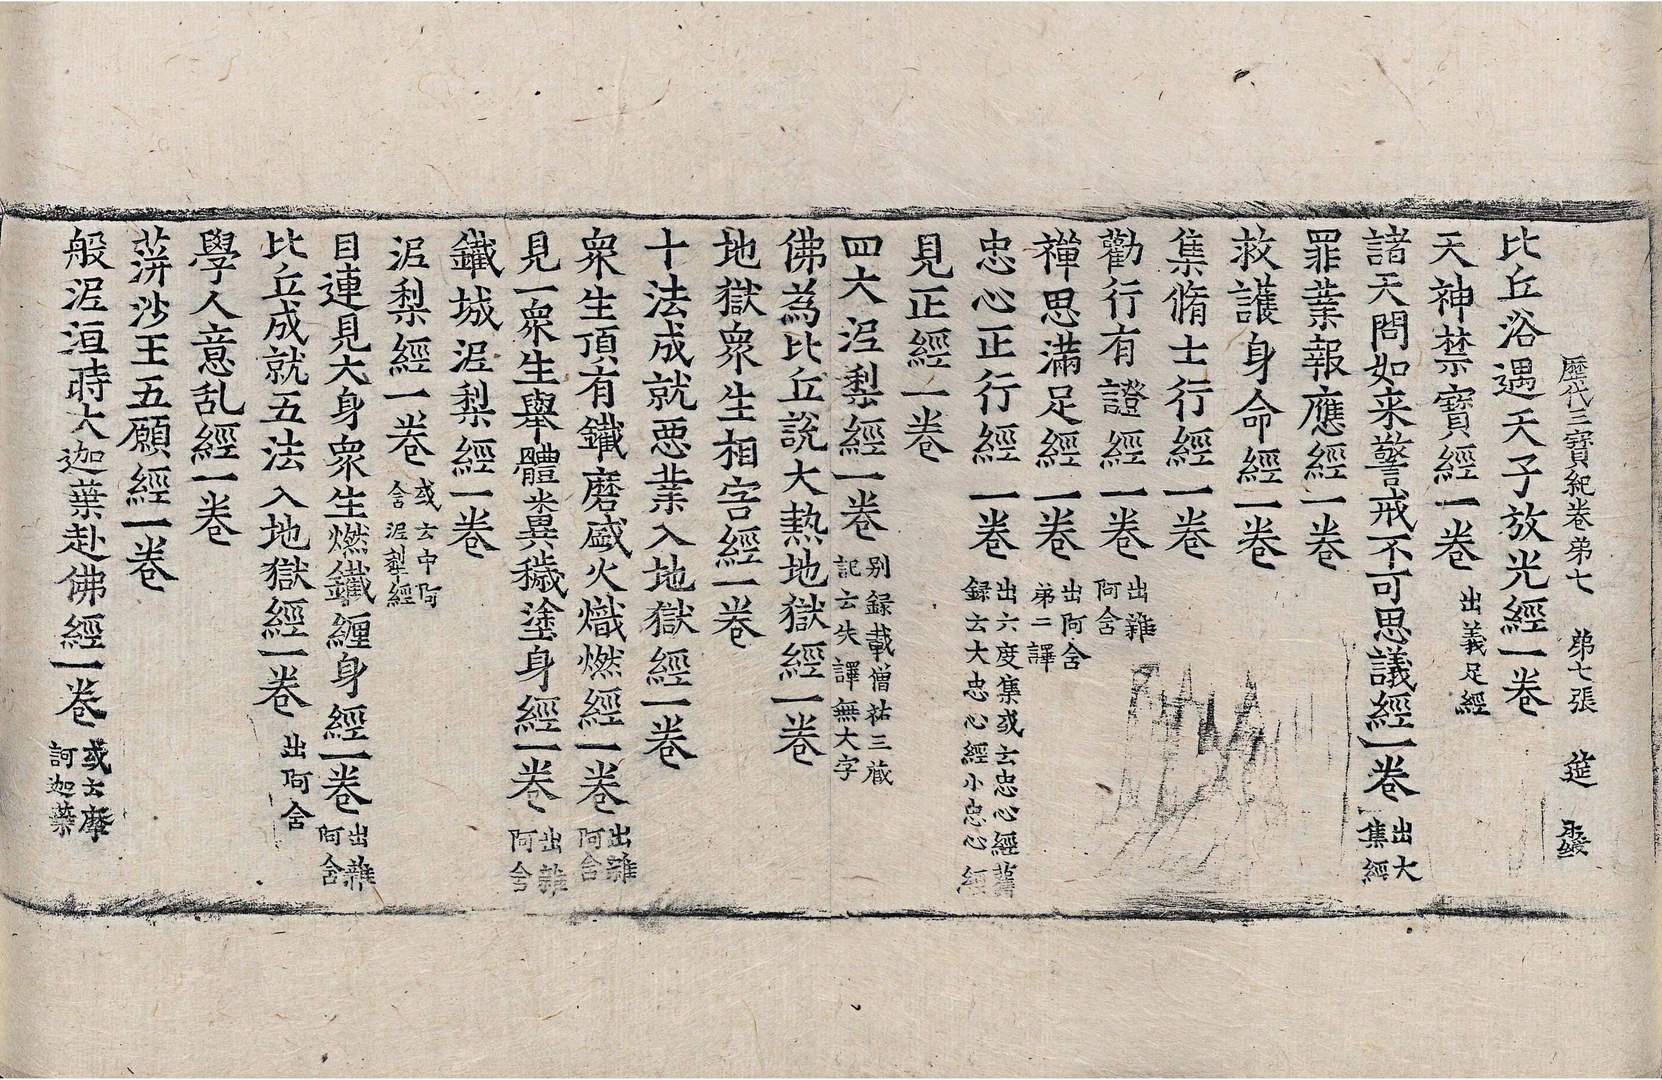 歷代三寶紀卷弟七 弟七張 莚
比丘浴遇天子放光經一卷
天神禁寶經一卷 出義足經
諸天問如来警戒不可思議經一卷 出大集經
罪業報應經一卷
救護身命經一卷
集脩士行經一卷
勸行有證經一卷 出雜阿含
禪思滿足經一卷 出阿含弟二譯
忠心正行經一卷 出六度集或云忠心經舊録云大忠心經小忠心經
見正經一卷
四大泥梨經一卷 别録載僧祐三藏記云失譯無大字
佛為比丘說大熱地獄經一卷
地獄衆生相害經一卷
十法成就惡業入地獄經一卷
衆生頂有鐵磨盛火熾燃經一卷 出雜阿含
見一衆生舉體糞穢塗身經一卷 出雜阿含
鐵城泥梨經一卷
泥梨經一卷 或云中阿含泥犁經
目連見大身衆生燃鐵纏身經一卷 出雜阿含
比丘成就五法入地獄經一卷 出阿含
學人意乱經一卷
蓱沙王五願經一卷
般泥洹時大迦葉赴佛經一卷 或云摩訶迦葉